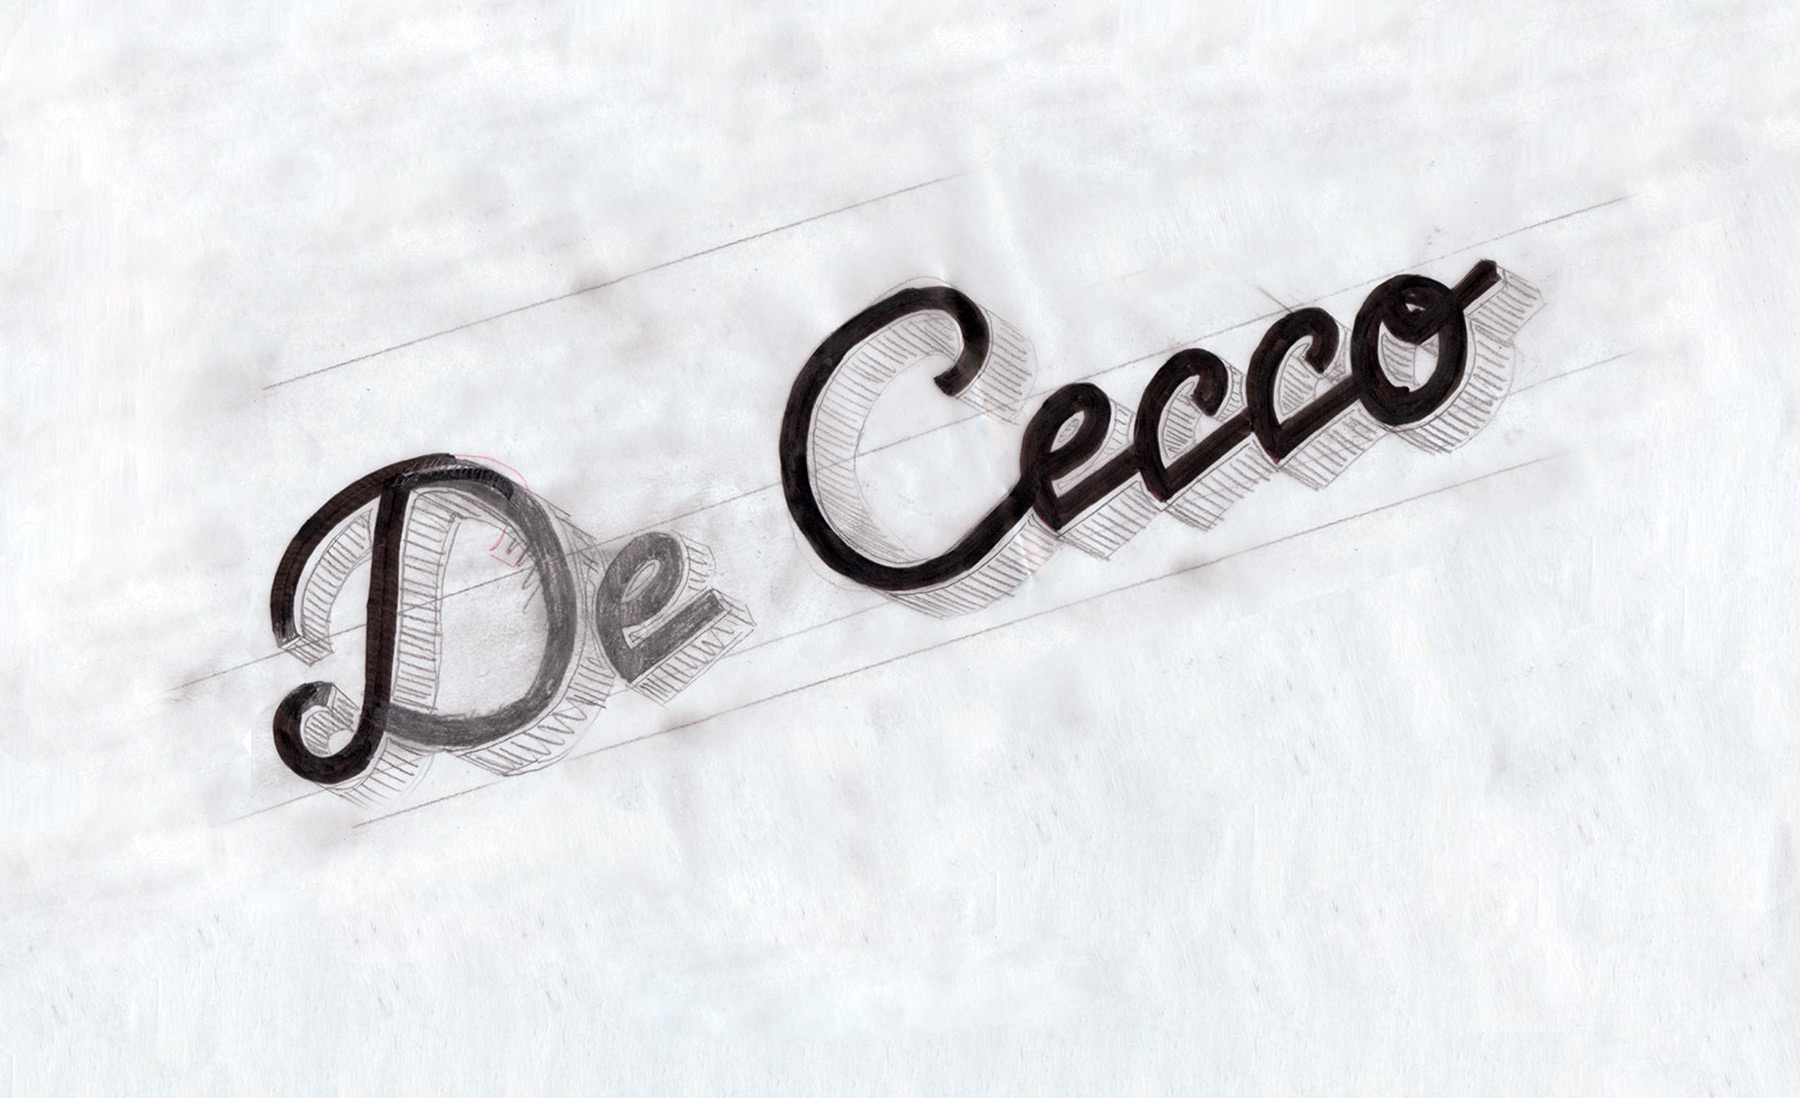 De Cecco